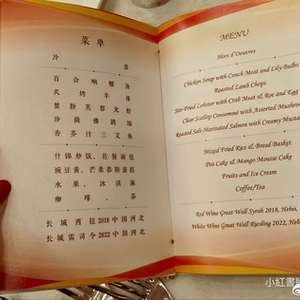 菜单
冷 盘
百合响螺汤
炙烤羊排
蟹粉芙蓉龙虾
香茶汁三文鱼
什锦炒饭、花餐面包
豌豆黄、芒果慕斯蛋糕
水果、冰淇淋
咖啡、茶
长城西拉2018中国河北
长城雷司令2022中国河北
MENU
Hors d'Oeuvres
Chicken Soup with Conch Meat and Lily Bulbs
Roasted Lamb Chops
Stir-Fried Lobster with Crab Meat & Roe and Egg
Clear Scallop Consommé with Assorted Mushro
Roasted Salt-Marinated Salmon with Creamy Mustar
Mixed Fried Rice & Bread Basket
Pea Cake & Mango Mousse Cake
Fruits and Ice Cream
Coffee/Tea
Red Wine Great Wall Syrah 2018, Hebei,
White Wine Great Wall Riesling 2022, Hebei,
小紅書